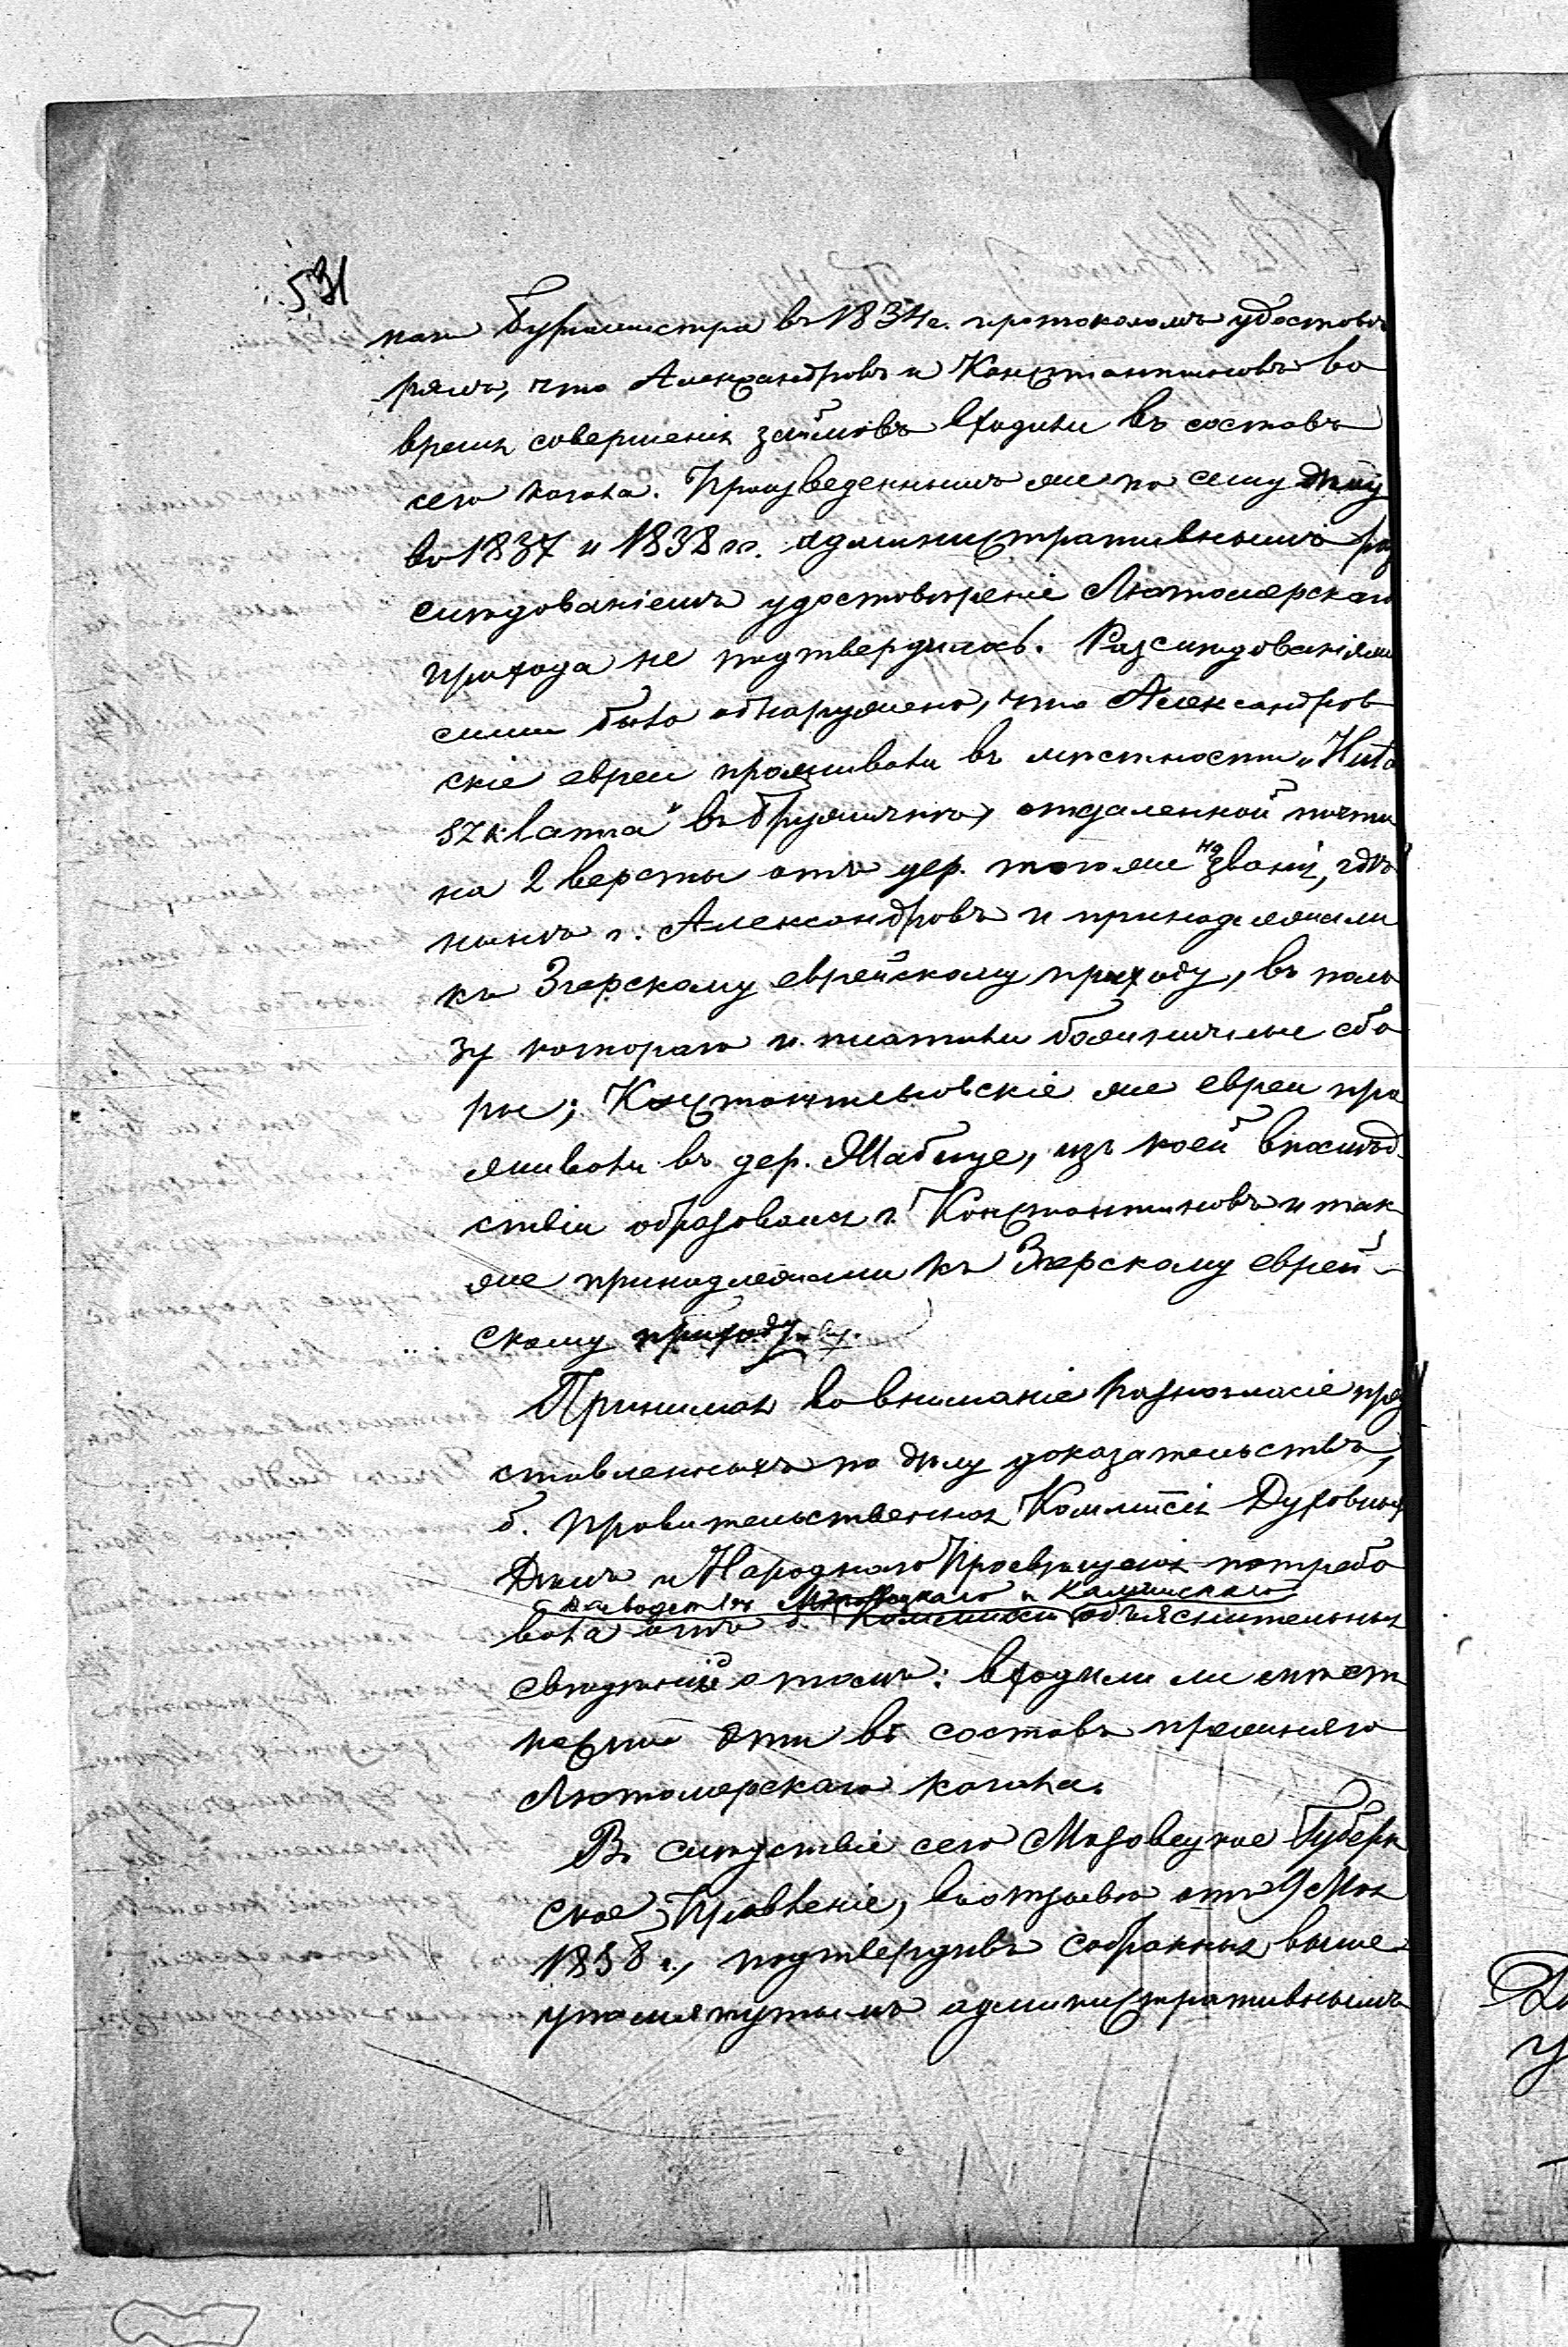 531
Бурмистра въ 1834 г. протоколомъ удостовѣ
рялъ, что Александровъ и Константиновъ во
время совершенія займовъ входили въ составъ
сего кагала. Произведеннымъ же по сему дѣлу
въ 1837 и 1838 гг. административнымъ раз
слѣдованіемъ удостовѣреніе Лютомерскаго
прихода не подтвердилось. Разслѣдованіями
сими было обнаружено, что Александров
скіе евреи проживали въ мѣстности „Huta
szklanna" въ Бружичкѣ, отдаленной почти
на 2 версты отъ дер. того же названія, гдѣ
нынѣ г. Александровъ и принадлежали
къ Згерскому еврейскому приходу, въ поль
зу котораго и платили божничные сбо
ры; Константиновскіе же евреи про
живали въ дер. Жабице, изъ коей впослѣд
ствіи образовался г. Константиновъ и так
же принадлежали къ Згерскому еврей-
скому приходу.
Принимая во вниманіе разногласіе пред
ставленныхъ по дѣлу доказательствъ,
б. Правительственная Коммисія Духовныхъ
Дѣлъ и Народнаго Просвѣщенія потребо
Воеводствъ Мазовецкаго и Калишскаго
вала отъ б. Коммисій объяснительныя
свѣдѣнія о томъ: входили ли мѣст
ности эти въ составъ прежняго
Лютомерскаго кагала.
Въ слѣдствіе сего Мазовецкое Губерн
ское Правленіе, отъ 9 Мая
1838 г., подтвердивъ собранныя выше
упомянутымъ административнымъ